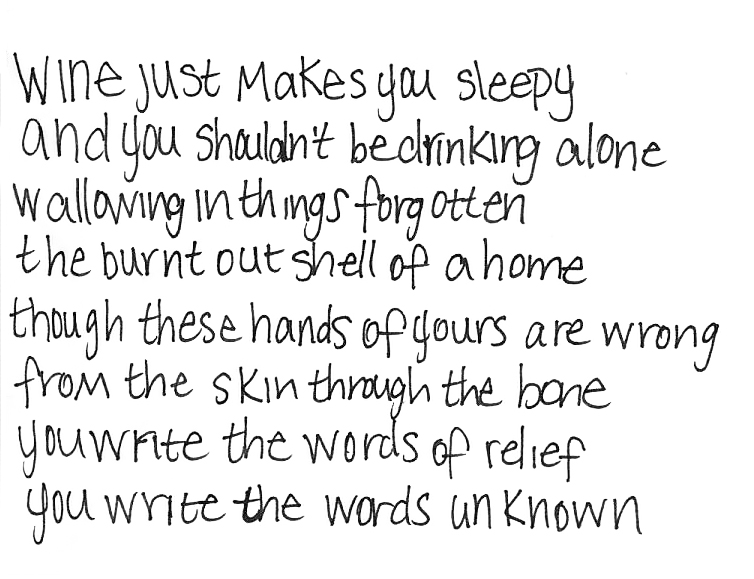 Wine just makes you sleepy
and you shouldn't be drinking alone
wallowing in things forgotten
the burnt out shell of a home
though these hands of yours are wrong
from the skin through the bone
you write the words of relief
you write the words unknown